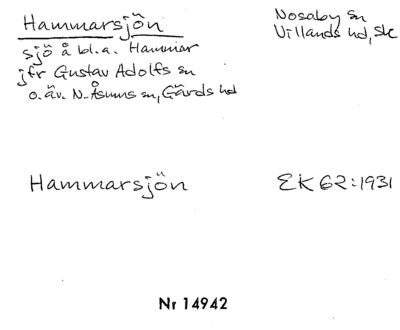 Hammarsjön
Nosaby sn
Villands hd, Sk
sjö å bl.a. Hammar
jfr Gustav Adolfs sn
o. äv. N. Åsums sn, Gärds hd
Hammarsjön
EK 62:1931
Nr 14942